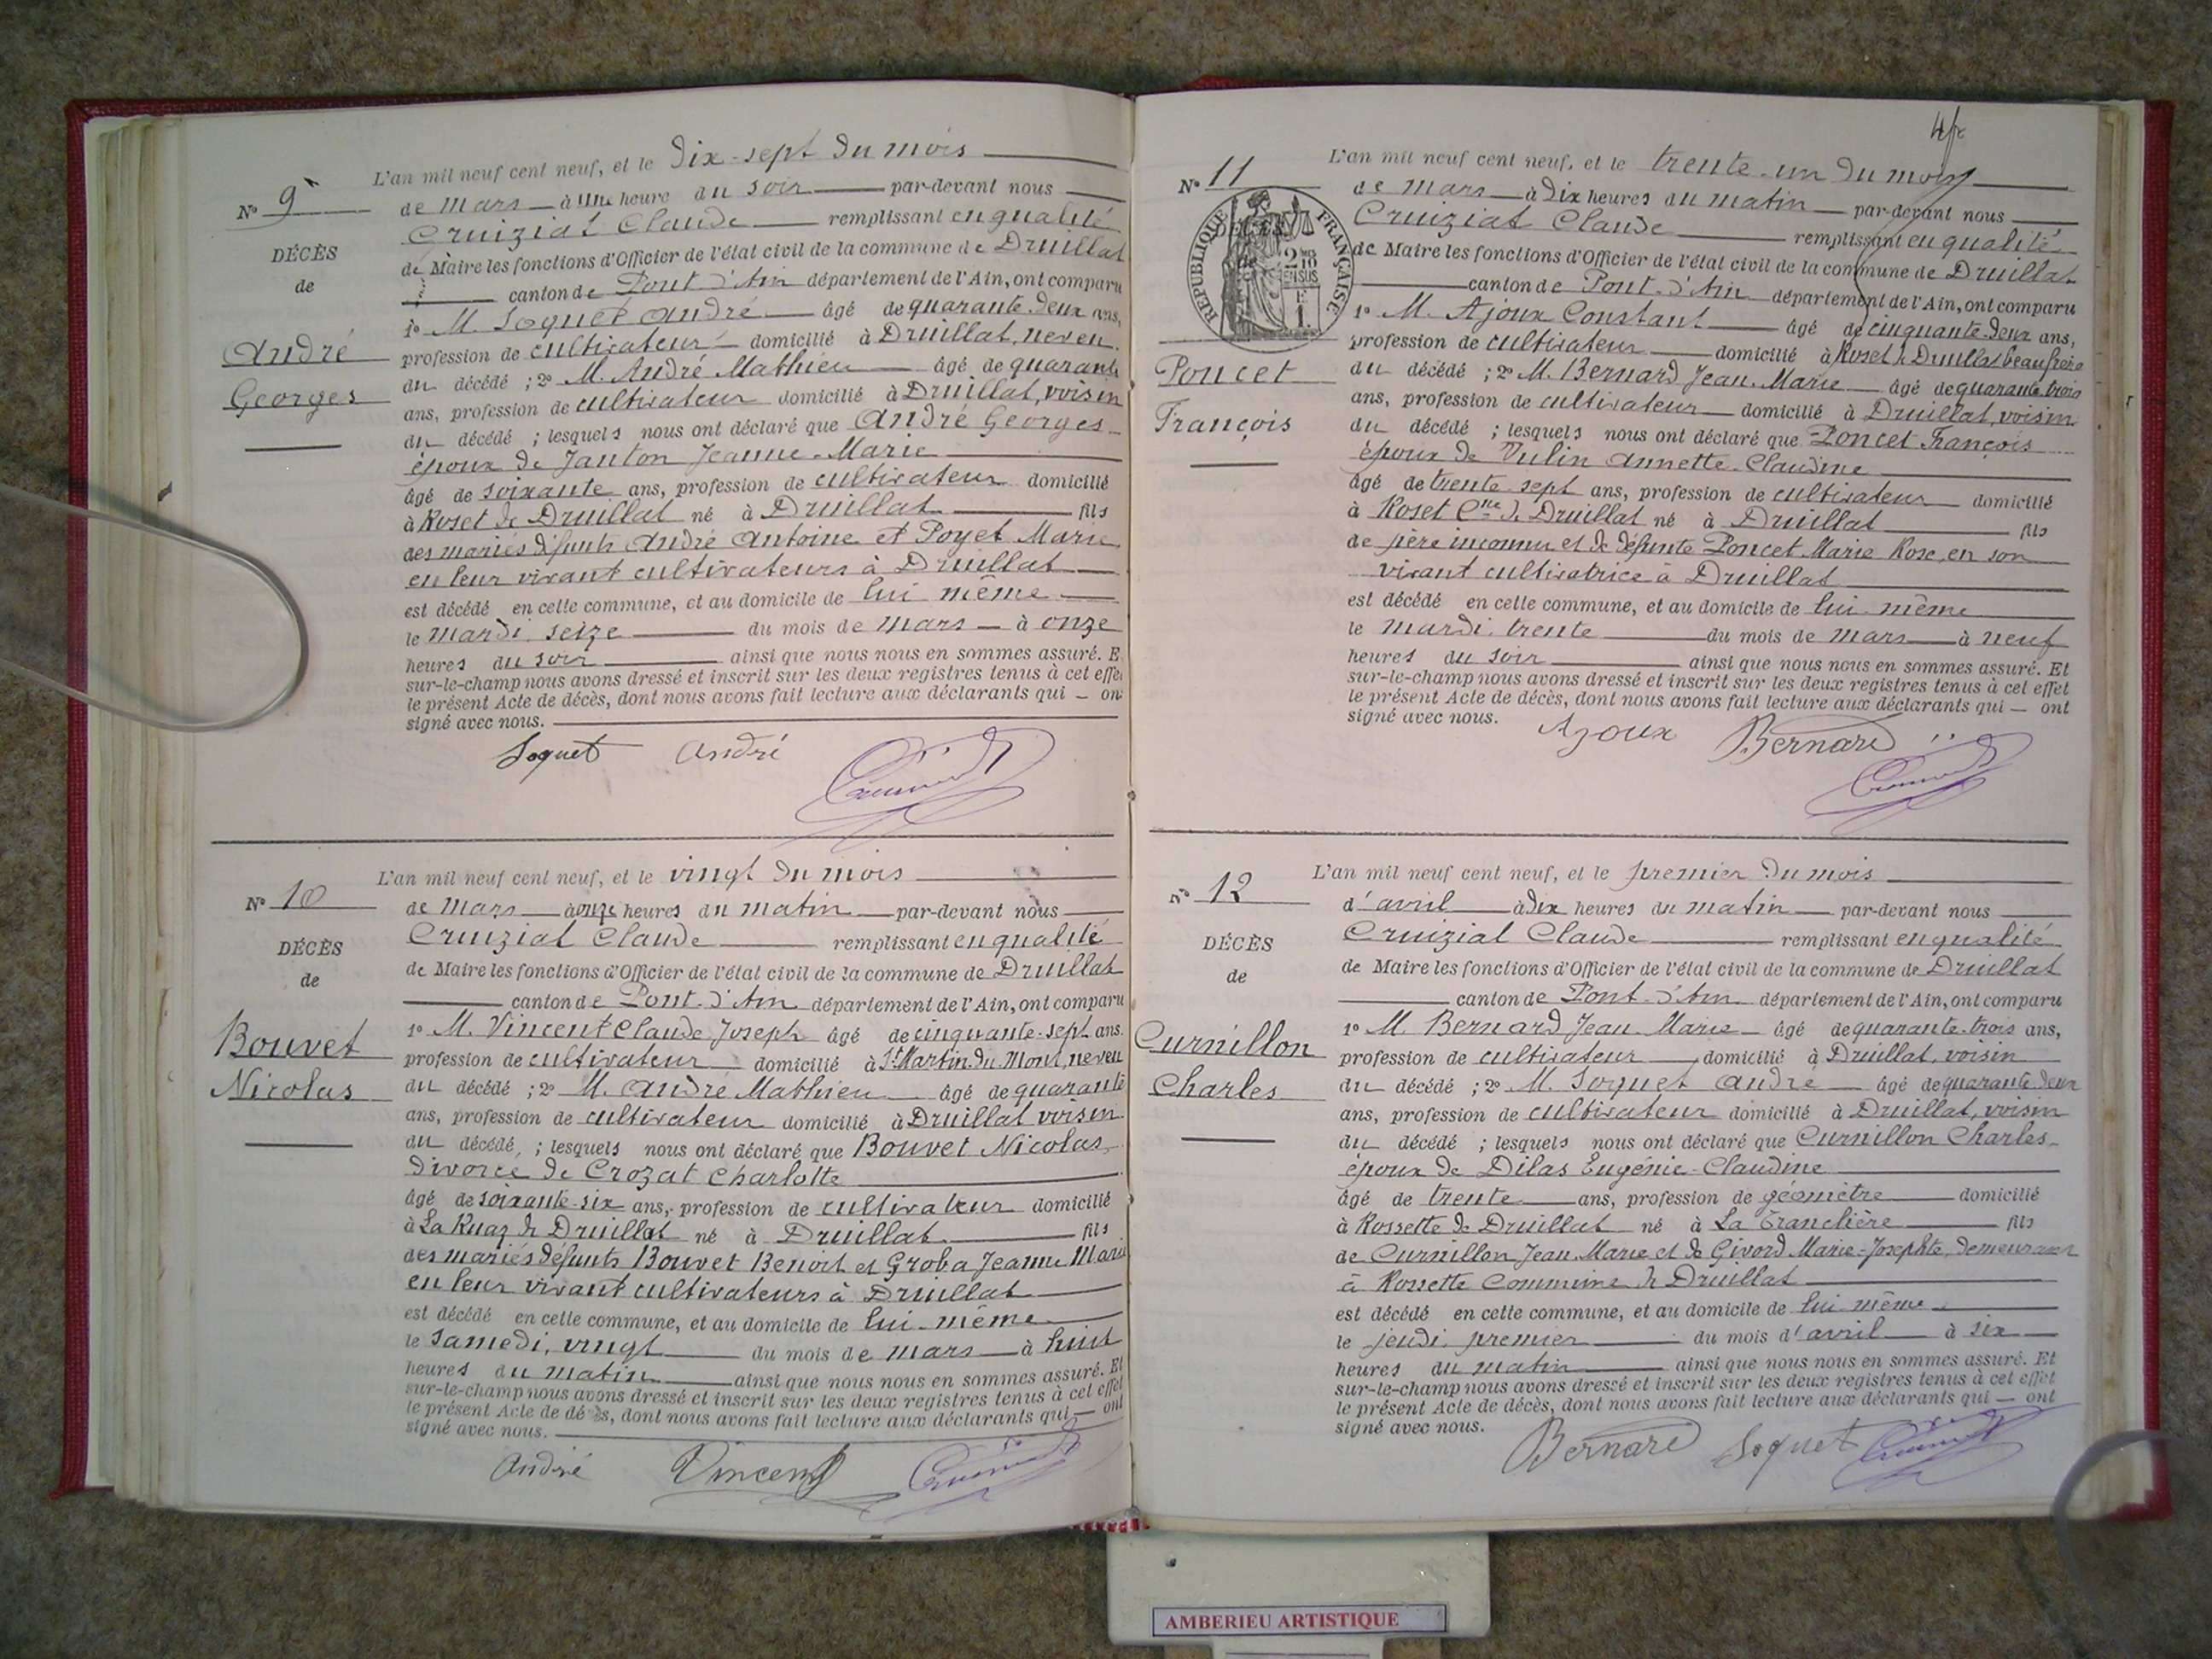 L'an mil neuf cent neuf, et le dix-sept du mois
N° 9
de mars à une heure du soir par-devant nous
Cruiziat Claude remplissant en qualité
DÉCÈS
de Maire les fonctions d'Officier de l'état civil de la commune de Druillat
de
canton de Pont d'Ain département de l'Ain, ont comparu
1° M. Soquet André âgé de quarante-deux ans,
André
profession de cultivateur domicilié à Druillat, neveu
du décédé ; 2° M. André Mathieu âgé de quarante
Georges
ans, profession de cultivateur domicilié à Druillat, voisin
du décédé ; lesquels nous ont déclaré que André Georges
époux de Janton Jeanne-Marie
âgé de soixante ans, profession de cultivateur domicilié
à Roset de Druillat né à Druillat fils
des mariés défunts André Antoine et Poyet Marie
en leur vivant cultivateurs à Druillat
est décédé en cette commune, et au domicile de lui-même
le mardi seize du mois de mars à onze
heures du soir ainsi que nous nous en sommes assuré. E
sur-le-champ nous avons dressé et inscrit sur les deux registres tenus à cet effet
le présent Acte de décès, dont nous avons fait lecture aux déclarants qui — ont
signé avec nous.
Soquet André
L'an mil neuf cent neuf, et le vingt du mois
N° 10
de mars à onze heures du matin par-devant nous
Cruiziat Claude remplissant en qualité
DÉCÈS
de Maire les fonctions d'Officier de l'état civil de la commune de Druillat
de
canton de Pont-d'Ain département de l'Ain, ont comparu
1° M. Vincent Claude-Joseph âgé de cinquante-sept ans.
Bouvet
profession de cultivateur domicilié à St Martin du Mont, neveu
Nicolas
du décédé ; 2° M. André Mathieu âgé de quarante
ans, profession de cultivateur domicilié à Druillat voisin
du décédé, ; lesquels nous ont déclaré que Bouvet Nicolas,
divorcé de Crozat Charlotte
âgé de soixante-six ans, profession de cultivateur domicilié
à La Ruaz de Druillat né à Druillat fils
des mariés défunts Bouvet Benoit et Groba Jeanne Marie
en leur vivant cultivateurs à Druillat
est décédé en cette commune, et au domicile de lui-même
le samedi, vingt du mois de mars à huit
heures du matin ainsi que nous nous en sommes assuré. Et
sur-le-champ nous avons dressé et inscrit sur les deux registres tenus à cet effet
le présent Acte de décès, dont nous avons fait lecture aux déclarants qui — ont
signé avec nous.
André Vincent
L'an mil neuf cent neuf, et le trente-un du mois
N° 11
de mars à dix heures du matin par-devant nous
Cruiziat Claude remplissant en qualité
RÉPUBLIQUE FRANÇAISE
de Maire les fonctions d'Officier de l'état civil de la commune de Druillat
canton de Pont-d'Ain département de l'Ain, ont comparu
1° M. Ajoux Constant âgé de cinquante-deux ans,
profession de cultivateur domicilié à Roset de Druillat beau frère
Poncet
du décédé ; 2° M. Bernard Jean-Marie âgé de quarante-trois
ans, profession de cultivateur domicilié à Druillat, voisin
François
du décédé ; lesquels nous ont déclaré que Poncet François
époux de Vulin Annette-Claudine
âgé de trente-sept ans, profession de cultivateur domicilié
à Roset Cne de Druillat né à Druillat fils
de père inconnu et de défunte Poncet Marie Rose, en son
vivant cultivatrice à Druillat
est décédé en cette commune, et au domicile de lui-même
le mardi, trente du mois de mars à neuf
heures du soir ainsi que nous nous en sommes assuré. Et
sur-le-champ nous avons dressé et inscrit sur les deux registres tenus à cet effet
le présent Acte de décès, dont nous avons fait lecture aux déclarants qui — ont
signé avec nous.
Ajoux Bernard
L'an mil neuf cent neuf, et le premier du mois
N° 12
d'avril à dix heures du matin par-devant nous
Cruiziat Claude remplissant en qualité
DÉCÈS
de Maire les fonctions d'Officier de l'état civil de la commune de Druillat
de
canton de Pont-d'Ain département de l'Ain, ont comparu
1° M. Bernard Jean-Marie âgé de quarante-trois ans,
Curnillon
profession de cultivateur domicilié à Druillat, voisin
Charles
du décédé ; 2° M. Soquet André âgé de quarante-deux
ans, profession de cultivateur domicilié à Druillat, voisin
du décédé ; lesquels nous ont déclaré que Curnillon Charles
époux de Dilas Eugénie-Claudine
âgé de trente ans, profession de géomètre domicilié
à Rossette de Druillat né à La Tranclière fils
de Curnillon Jean-Marie et de Givord Marie-Josephte, demeurant
à Rossette Commune de Druillat
est décédé en cette commune, et au domicile de lui-même
le jeudi, premier du mois d'avril à six
heures du matin ainsi que nous nous en sommes assuré. Et
sur-le-champ nous avons dressé et inscrit sur les deux registres tenus à cet effet
le présent Acte de décès, dont nous avons fait lecture aux déclarants qui — ont
signé avec nous.
Bernard Soquet
AMBERIEU ARTISTIQUE